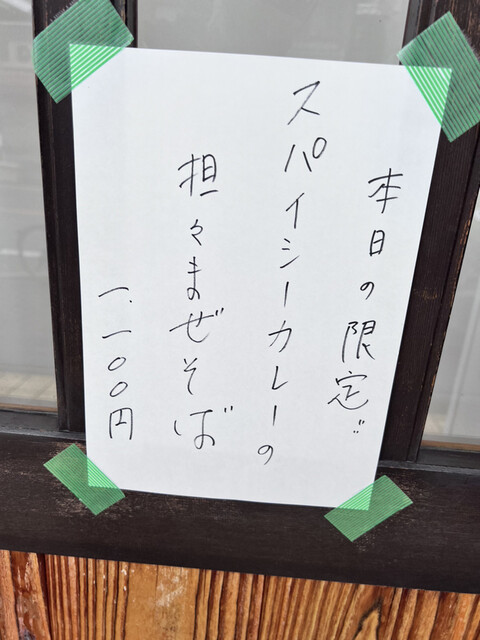 本日の限定!!
スパイシーカレーの
担々まぜそば
一、一〇〇円